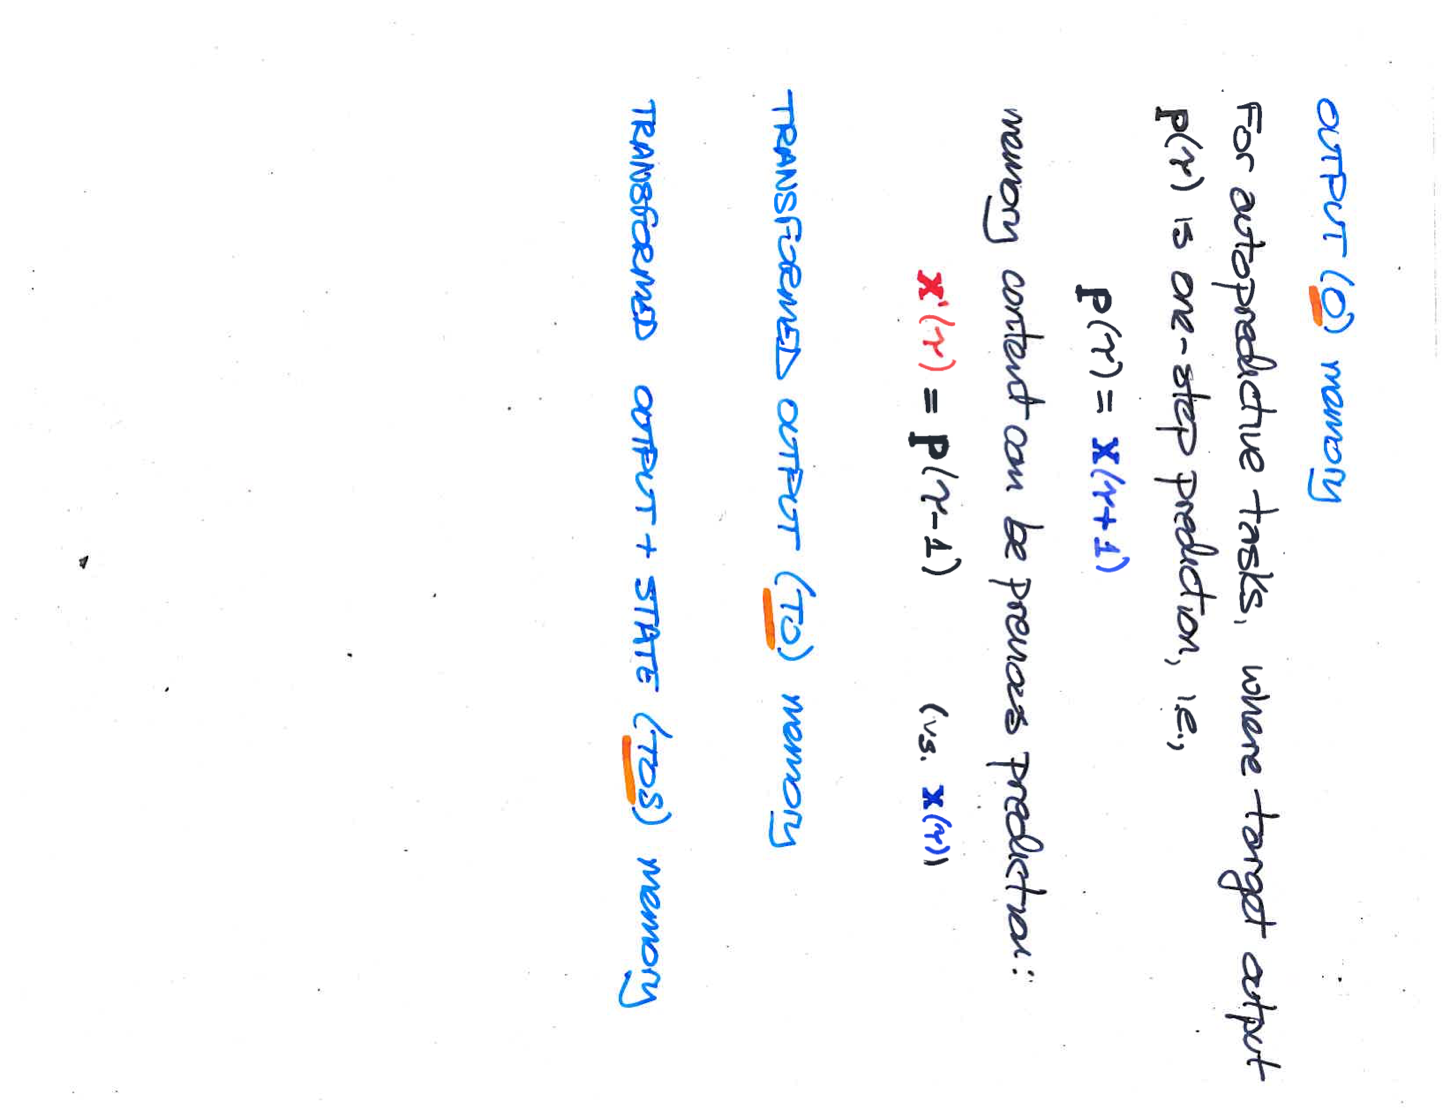 OUTPUT (O) memory
For autopredictive tasks, where target output
p(τ) is one-step prediction, i.e.,
p(τ) = x(τ+1)
memory content can be previous prediction:
x'(τ) = p(τ-1) (vs. x(τ))
TRANSFORMED OUTPUT (TO) memory
TRANSFORMED OUTPUT + STATE (TOS) memory